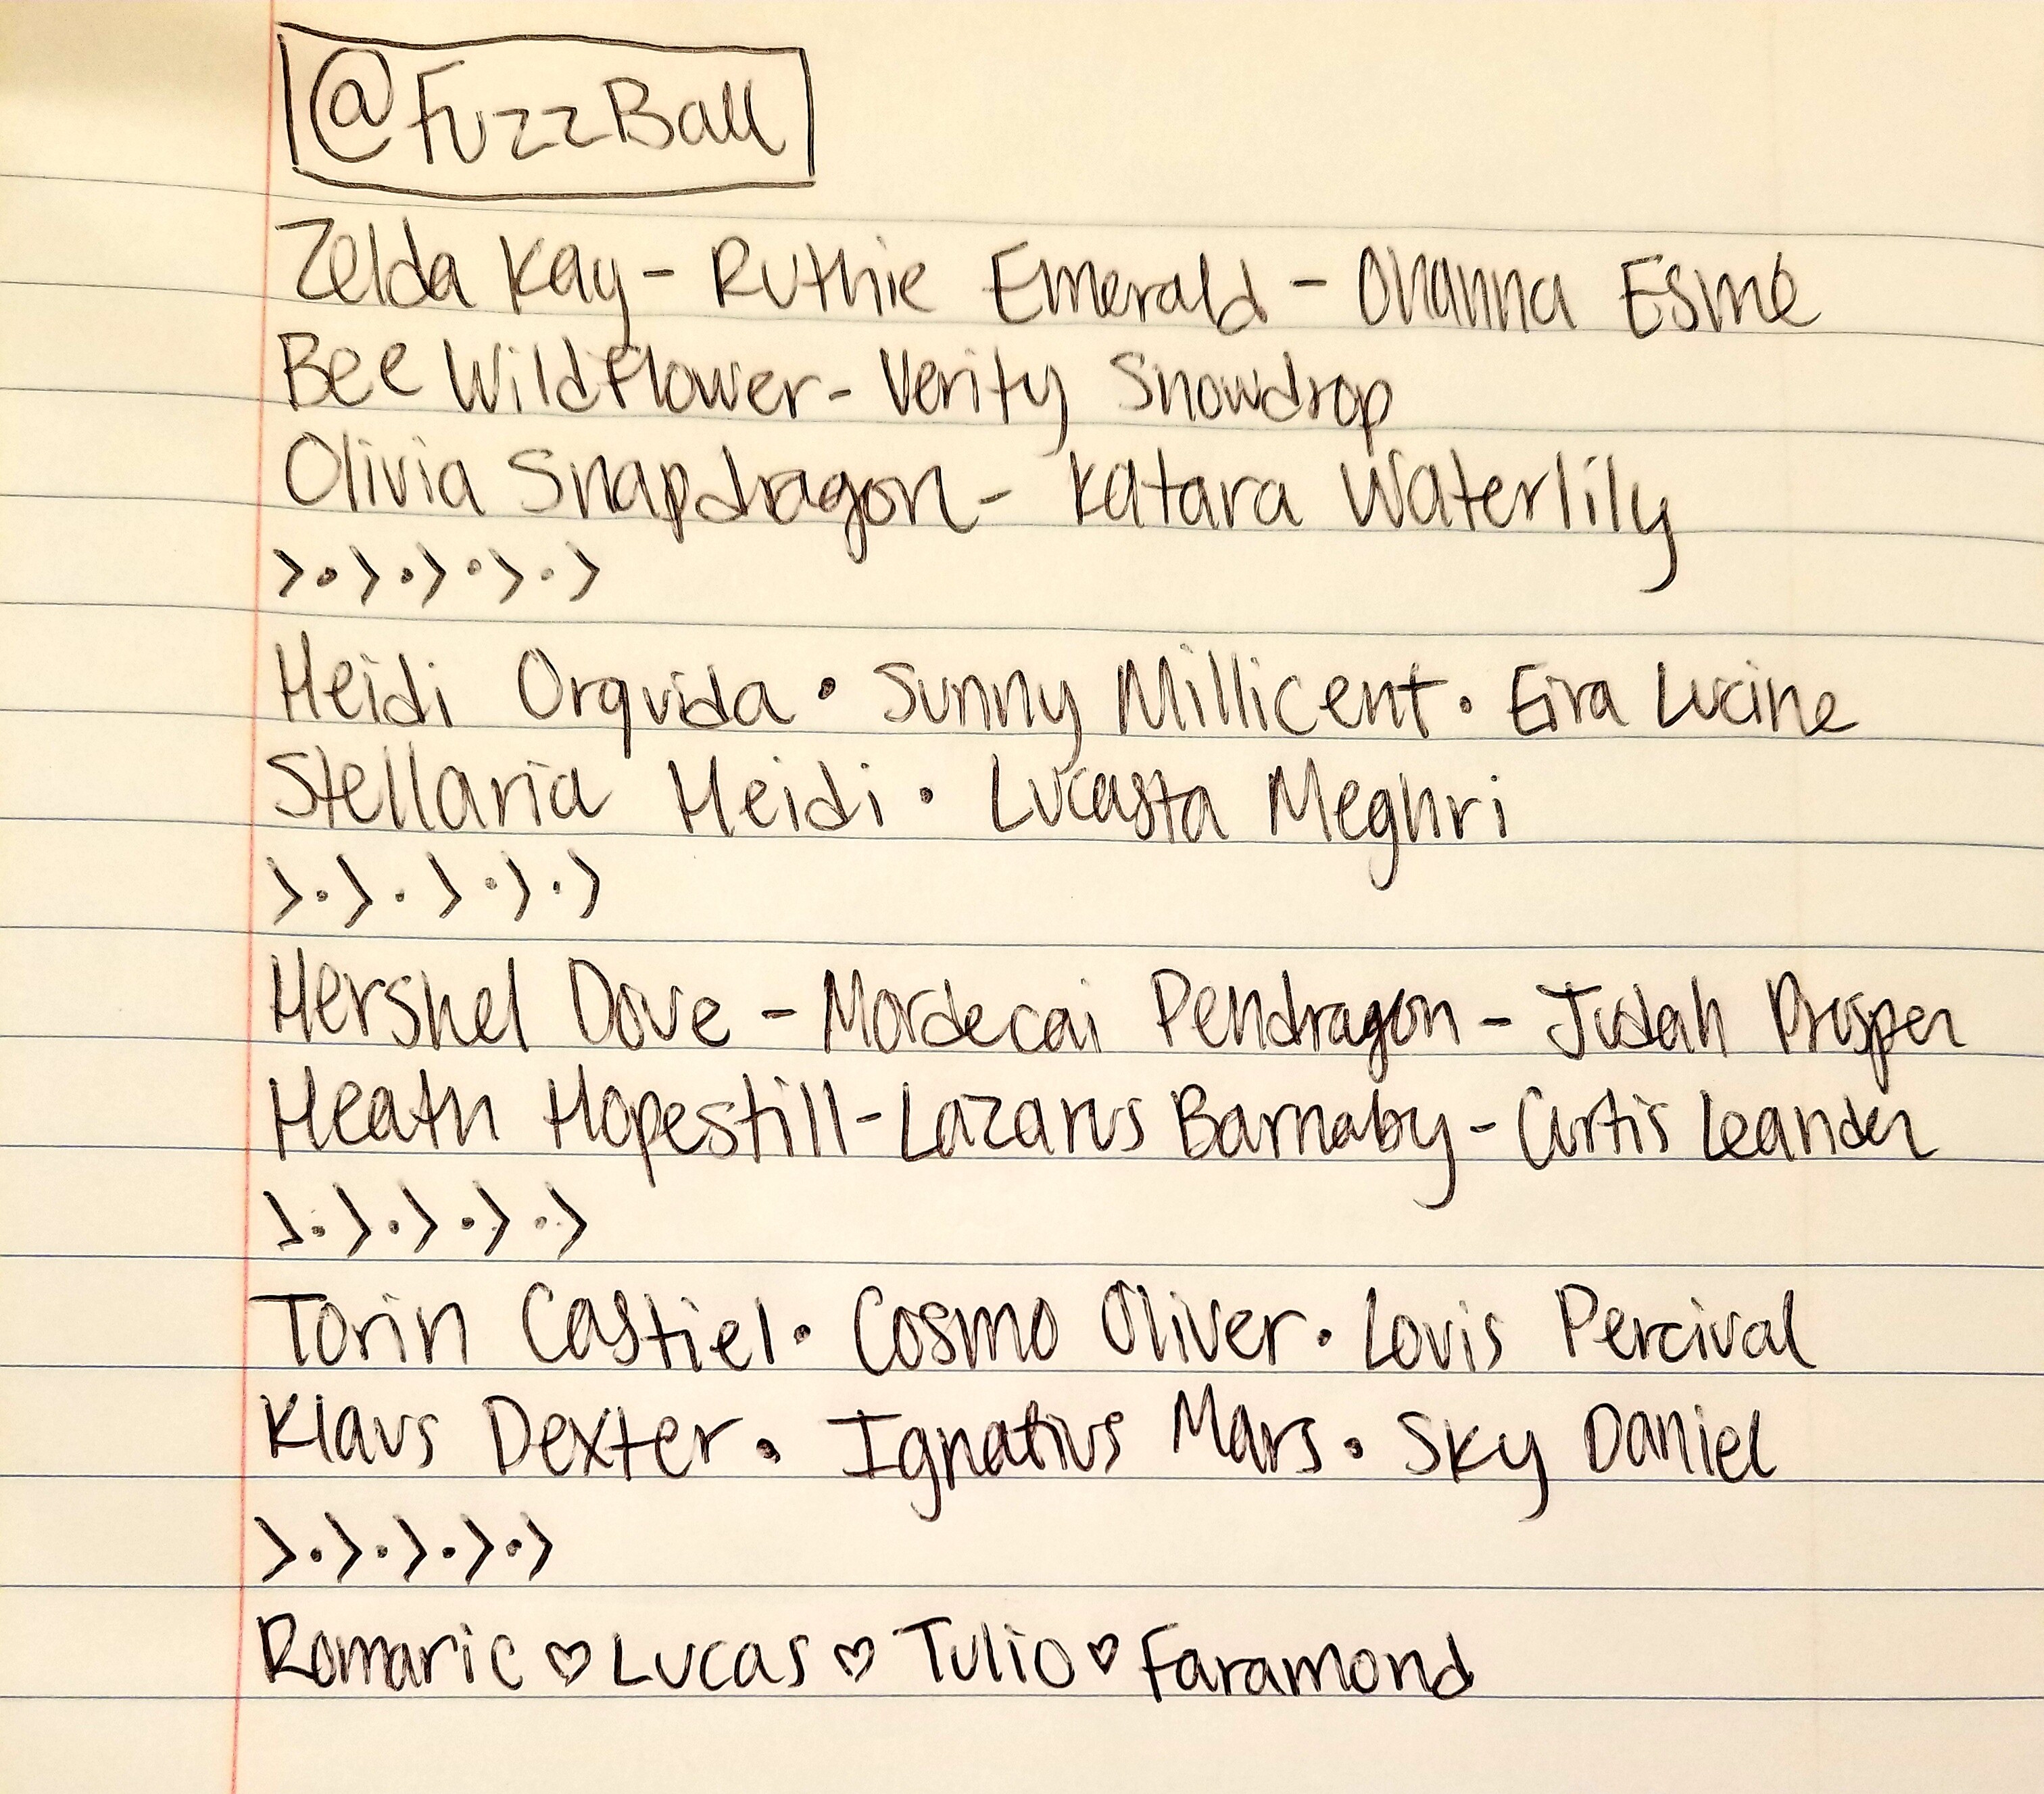 @FuzzBall
Zelda Kay - Ruthie Emerald - Ohanna Esmé
Bee Wildflower - Verity Snowdrop
Olivia Snapdragon - Katara Waterlily
>•>•>•>•>
Heidi Orquida • Sunny Millicent • Eira Lucine
Stellaria Heidi • Lucasta Meghri
>•>•>•>•>
Hershel Dove - Mordecai Pendragon - Judah Prosper
Heath Hopestill - Lazarus Barnaby - Curtis Leander
>•>•>•>•>
Torin Castiel • Cosmo Oliver • Louis Percival
Klaus Dexter • Ignatius Mars • Sky Daniel
>•>•>•>•>
Romaric ♡ Lucas ♡ Tulio ♡ Faramond